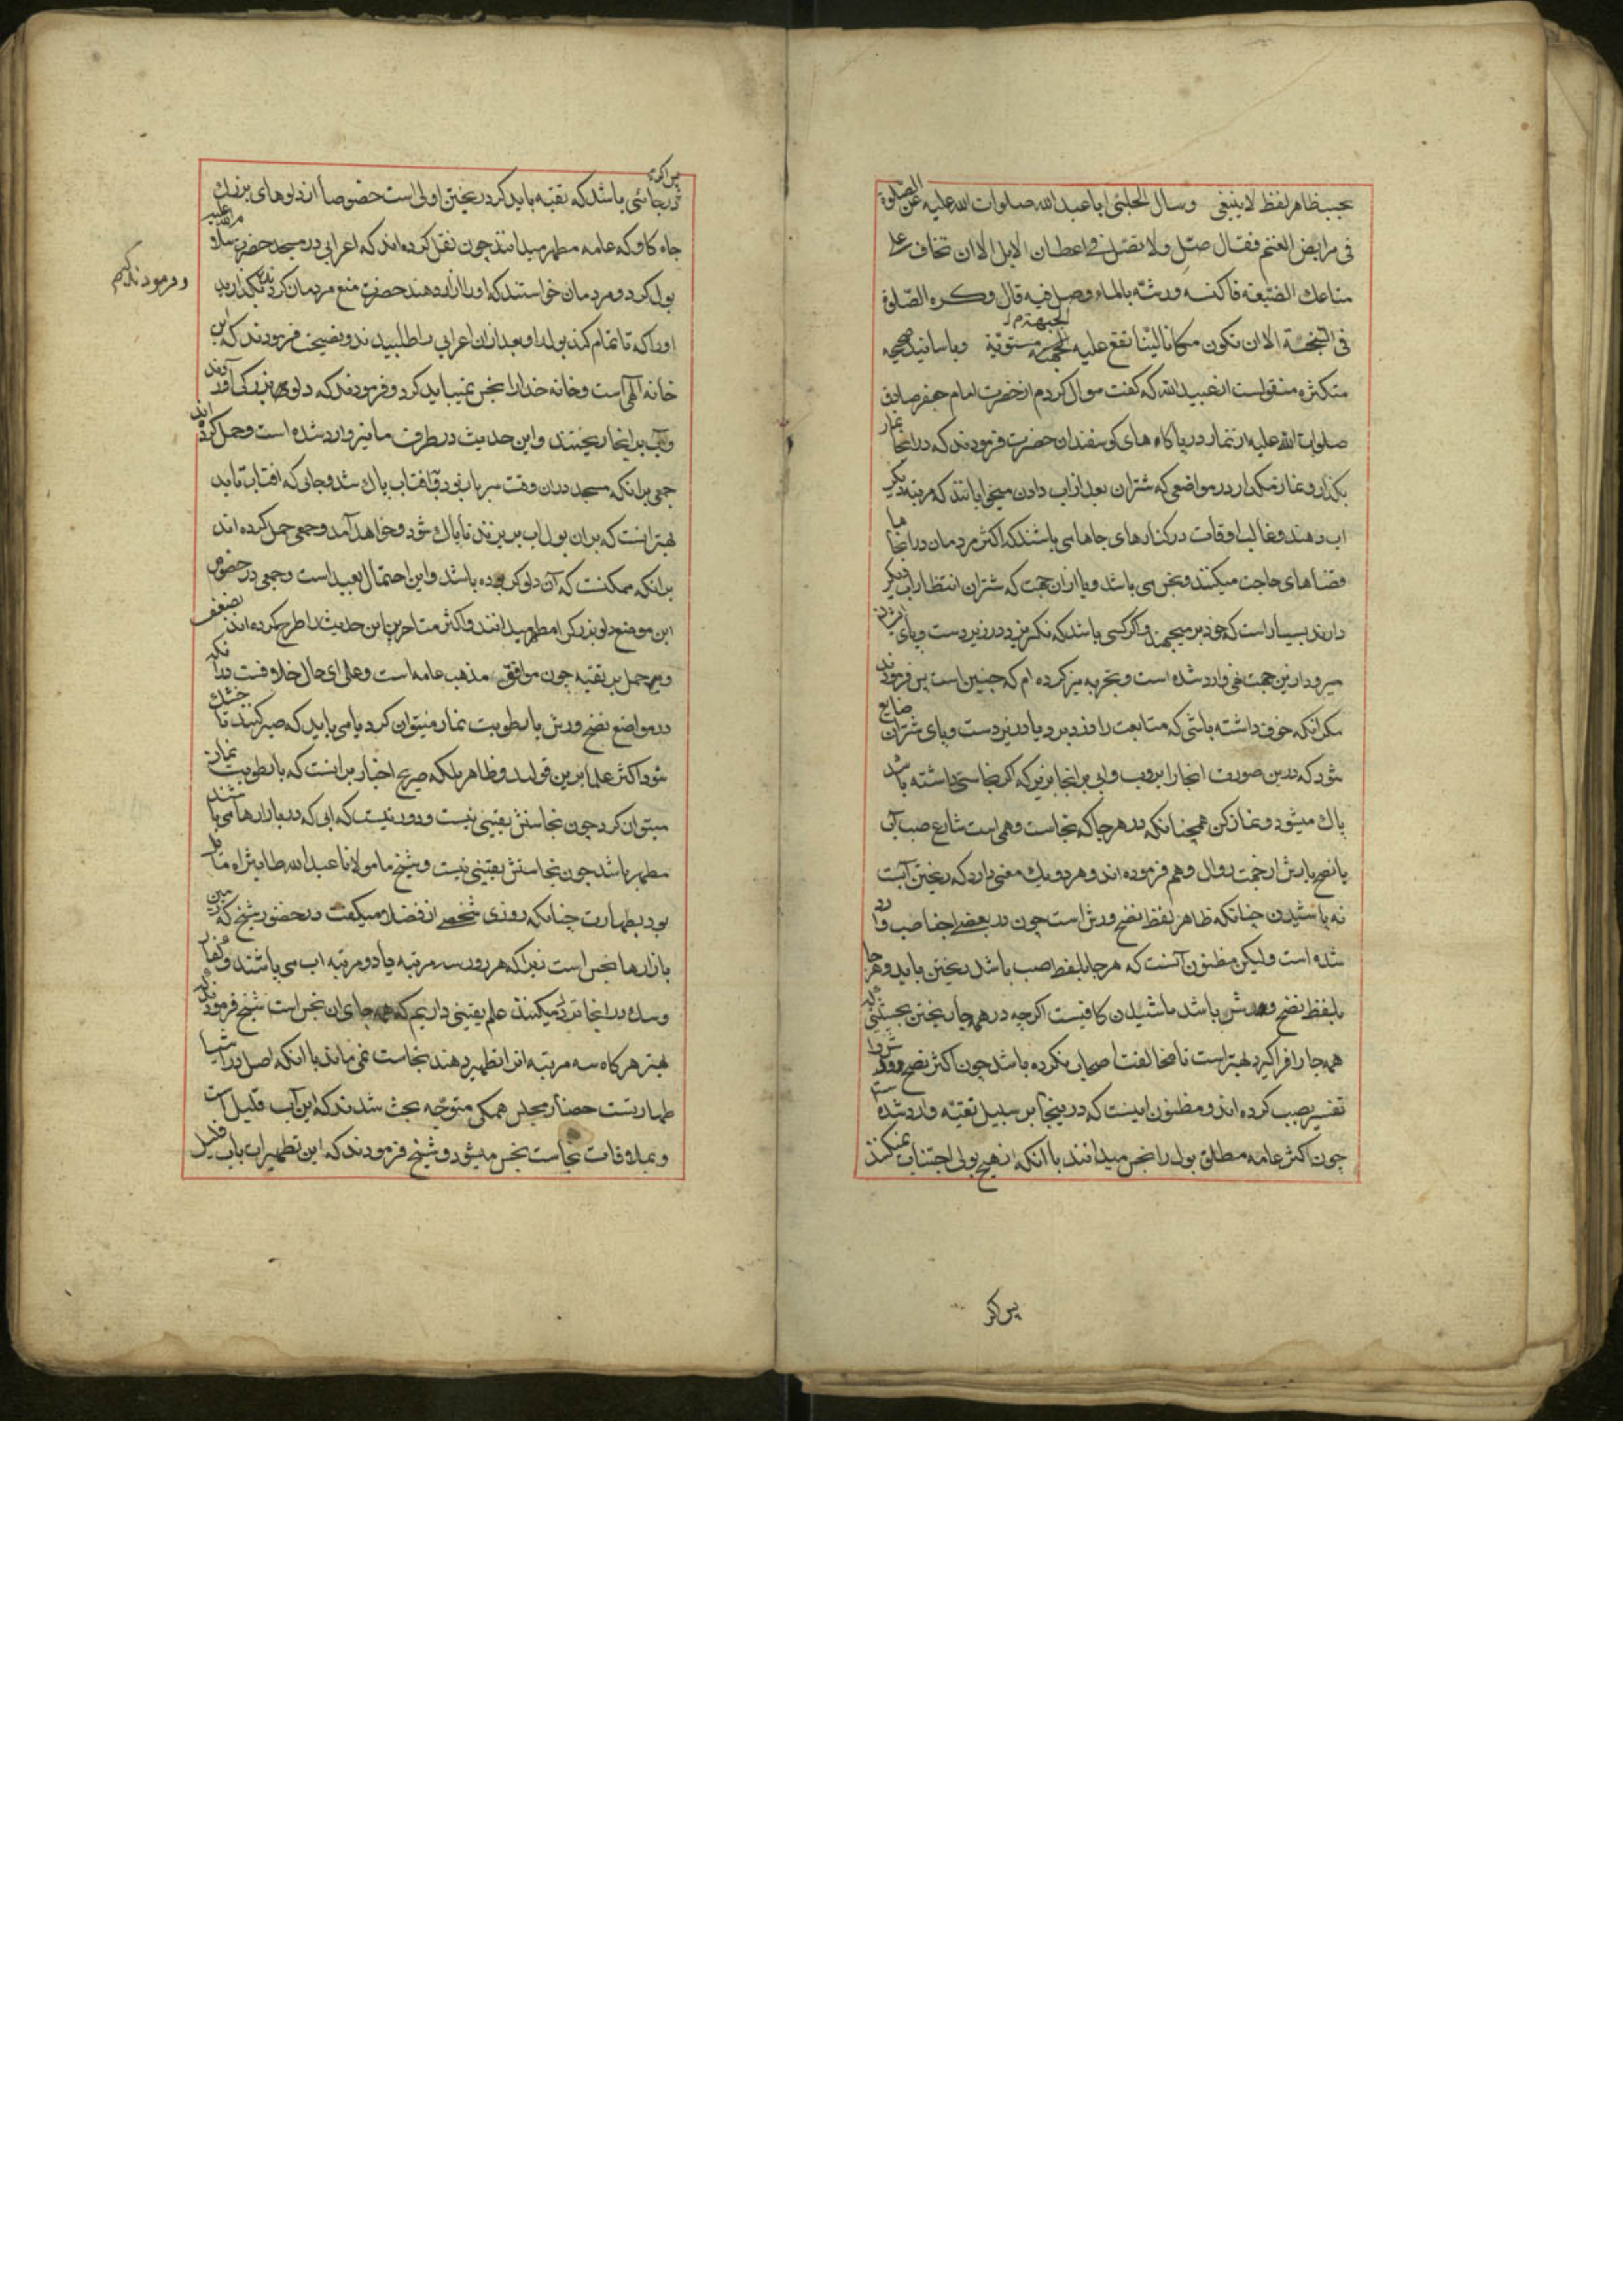 بحسب ظاهر لفظ لا ینبغی وسال الحلبی ابا عبد الله صلوات الله علیه عن الصلوة
فی مرابض الغنم فقال صل ولا تصل فی اعطان الابل الا ان تخاف علی
متاعک الضیعة فاکنسه ورشه بالماء وصل فیه قال وکره الصلوة
فی السبخة الا ان تکون مکانا لینا تقع علیه الجبهة مستویة وباسانید صحیحه
متکثره منقولست از عبید الله که گفت سوال کردم از حضرت امام جعفر صادق
صلوات الله علیه از نماز در پاگاه های کوسفندان حضرت فرمودند که در انجا نماز
بکذار و نماز مکذار در مواضعی که شتران بعد از اب دادن میخوابانند که مرتبه دیکر
اب دهند و غالب اوقات در کنارهای جاها می باشند که اکثر مردمان در انجا
قضاهای حاجت میکنند و نجس می باشد و یا از ان جهت که شتران انتظار اب دیکر
دارند بسیار است که خود بر میجهند و اکر کسی باشد که نکریزد در زیر دست و پای
میرود ازین جهت نهی وارد شده است و بتجربه نیز کرده ام که چنین است پس فرمودند
مکر انکه خوف داشته باشی که متاعت را دزد برد یا در زیر دست و پای شتران ضایع
شود که درین صورت انجا را بروب و ابی بر انجا بریز که اکر نجاستی داشته باشد
پاک میشود و نماز کن همچنانکه در هر جا که نجاست وهمی است شارع صب آب
یا نضح یا رش از جهت زوال وهم فرموده اند و هر دو یک معنی دارد که ریختن آبست
نه پاشیدن چنانکه ظاهر لفظ نضح و رش است چون در بعضی اخبار صب وارد
شده است و لیکن مظنون آنست که هر جا بلفظ صب باشد ریختن باید و هر جا
بلفظ نضح و رش باشد پاشیدن کافیست اکرچه در همه جا ریختن بحیثیتی که
همه جا را فرا کیرد بهتر است تا مخالفت اصحاب نکرده باشد چون اکثر نضح و رش را
تفسیر بصب کرده اند و مظنون اینست که در ینجا بر سبیل تقیه وارد شده است
چون اکثر عامه مطلق بول را نجس میدانند با انکه از هیچ بولی اجتناب نمیکنند
پس اکر
پس اکر در جائی باشد که تقیه باید کرد ریختن اولی است خصوصا از دلوهای بزرک
چاه کاو که عامه مطهر میدانند چون نقل کرده اند که اعرابی در مسجد حضرت
بول کرد و مردمان خواستند که او را ازار دهند حضرت منع مردمان کردند که بکذارید
او را که تا تمام کند بول او بعد از ان اعرابی را طلبیدند و نصیحت فرمودند که این
خانه الهی است و خانه خدا را نجس نمیباید کرد و فرمودند که دلوی بزرکی آب آوردند
و آب بر انجا ریختند و این حدیث در طرق ما نیز وارد شده است و حمل کرده اند
جمعی بر انکه مسجد در ان وقت سر باز بود و آفتاب پاک شد و جائی که افتاب تابید
بهتر انست که بر ان بول اب بریزند تا پاک شود و خواهد آمد و جمعی حمل کرده اند
بر انکه ممکنست که آن دلو کر بوده باشد و این احتمال بعید است و جمعی در خصوص
این موضع دلو بزرک را مطهر میدانند و اکثر متاخرین این حدیث را طرح کرده اند بضعف
و بر حمل بر تقیه چون موافق مذهب عامه است و علی ای حال خلافست در انکه
در مواضع نضح و رش با رطوبت نماز میتوان کرد یا می باید که صبر کنند تا خشک
شود اکثر علما برین قولند و ظاهر بلکه صریح اخبار بر انست که با رطوبت نماز
میتوان کرد چون نجاستش یقینی نیست و دور نیست که ابی که در بازارها می پاشند
مطهر باشد چون نجاستش یقینی نیست و شیخ ما مولانا عبد الله طاب ثراه قایل
بود بطهارت چنانکه روزی شخصی از فضلا میکفت در حضور شیخ که زمین
بازارها نجس است زیرا که هر روز سه مرتبه یا دو مرتبه اب می پاشند و کفار
و سک در انجا تردد میکنند علم یقینی داریم که همه جای ان نجس است شیخ فرمودند که
بهتر هر کاه سه مرتبه انرا تطهیر دهند نجاست نمی ماند با انکه اصل در اشیا
طهارتست حضار مجلس همکی متوجه بحث شدند که این آب قلیل است
و بملاقات نجاست نجس میشود و شیخ فرمودند که این تطهیر است باب قلیل
و فرمودند که